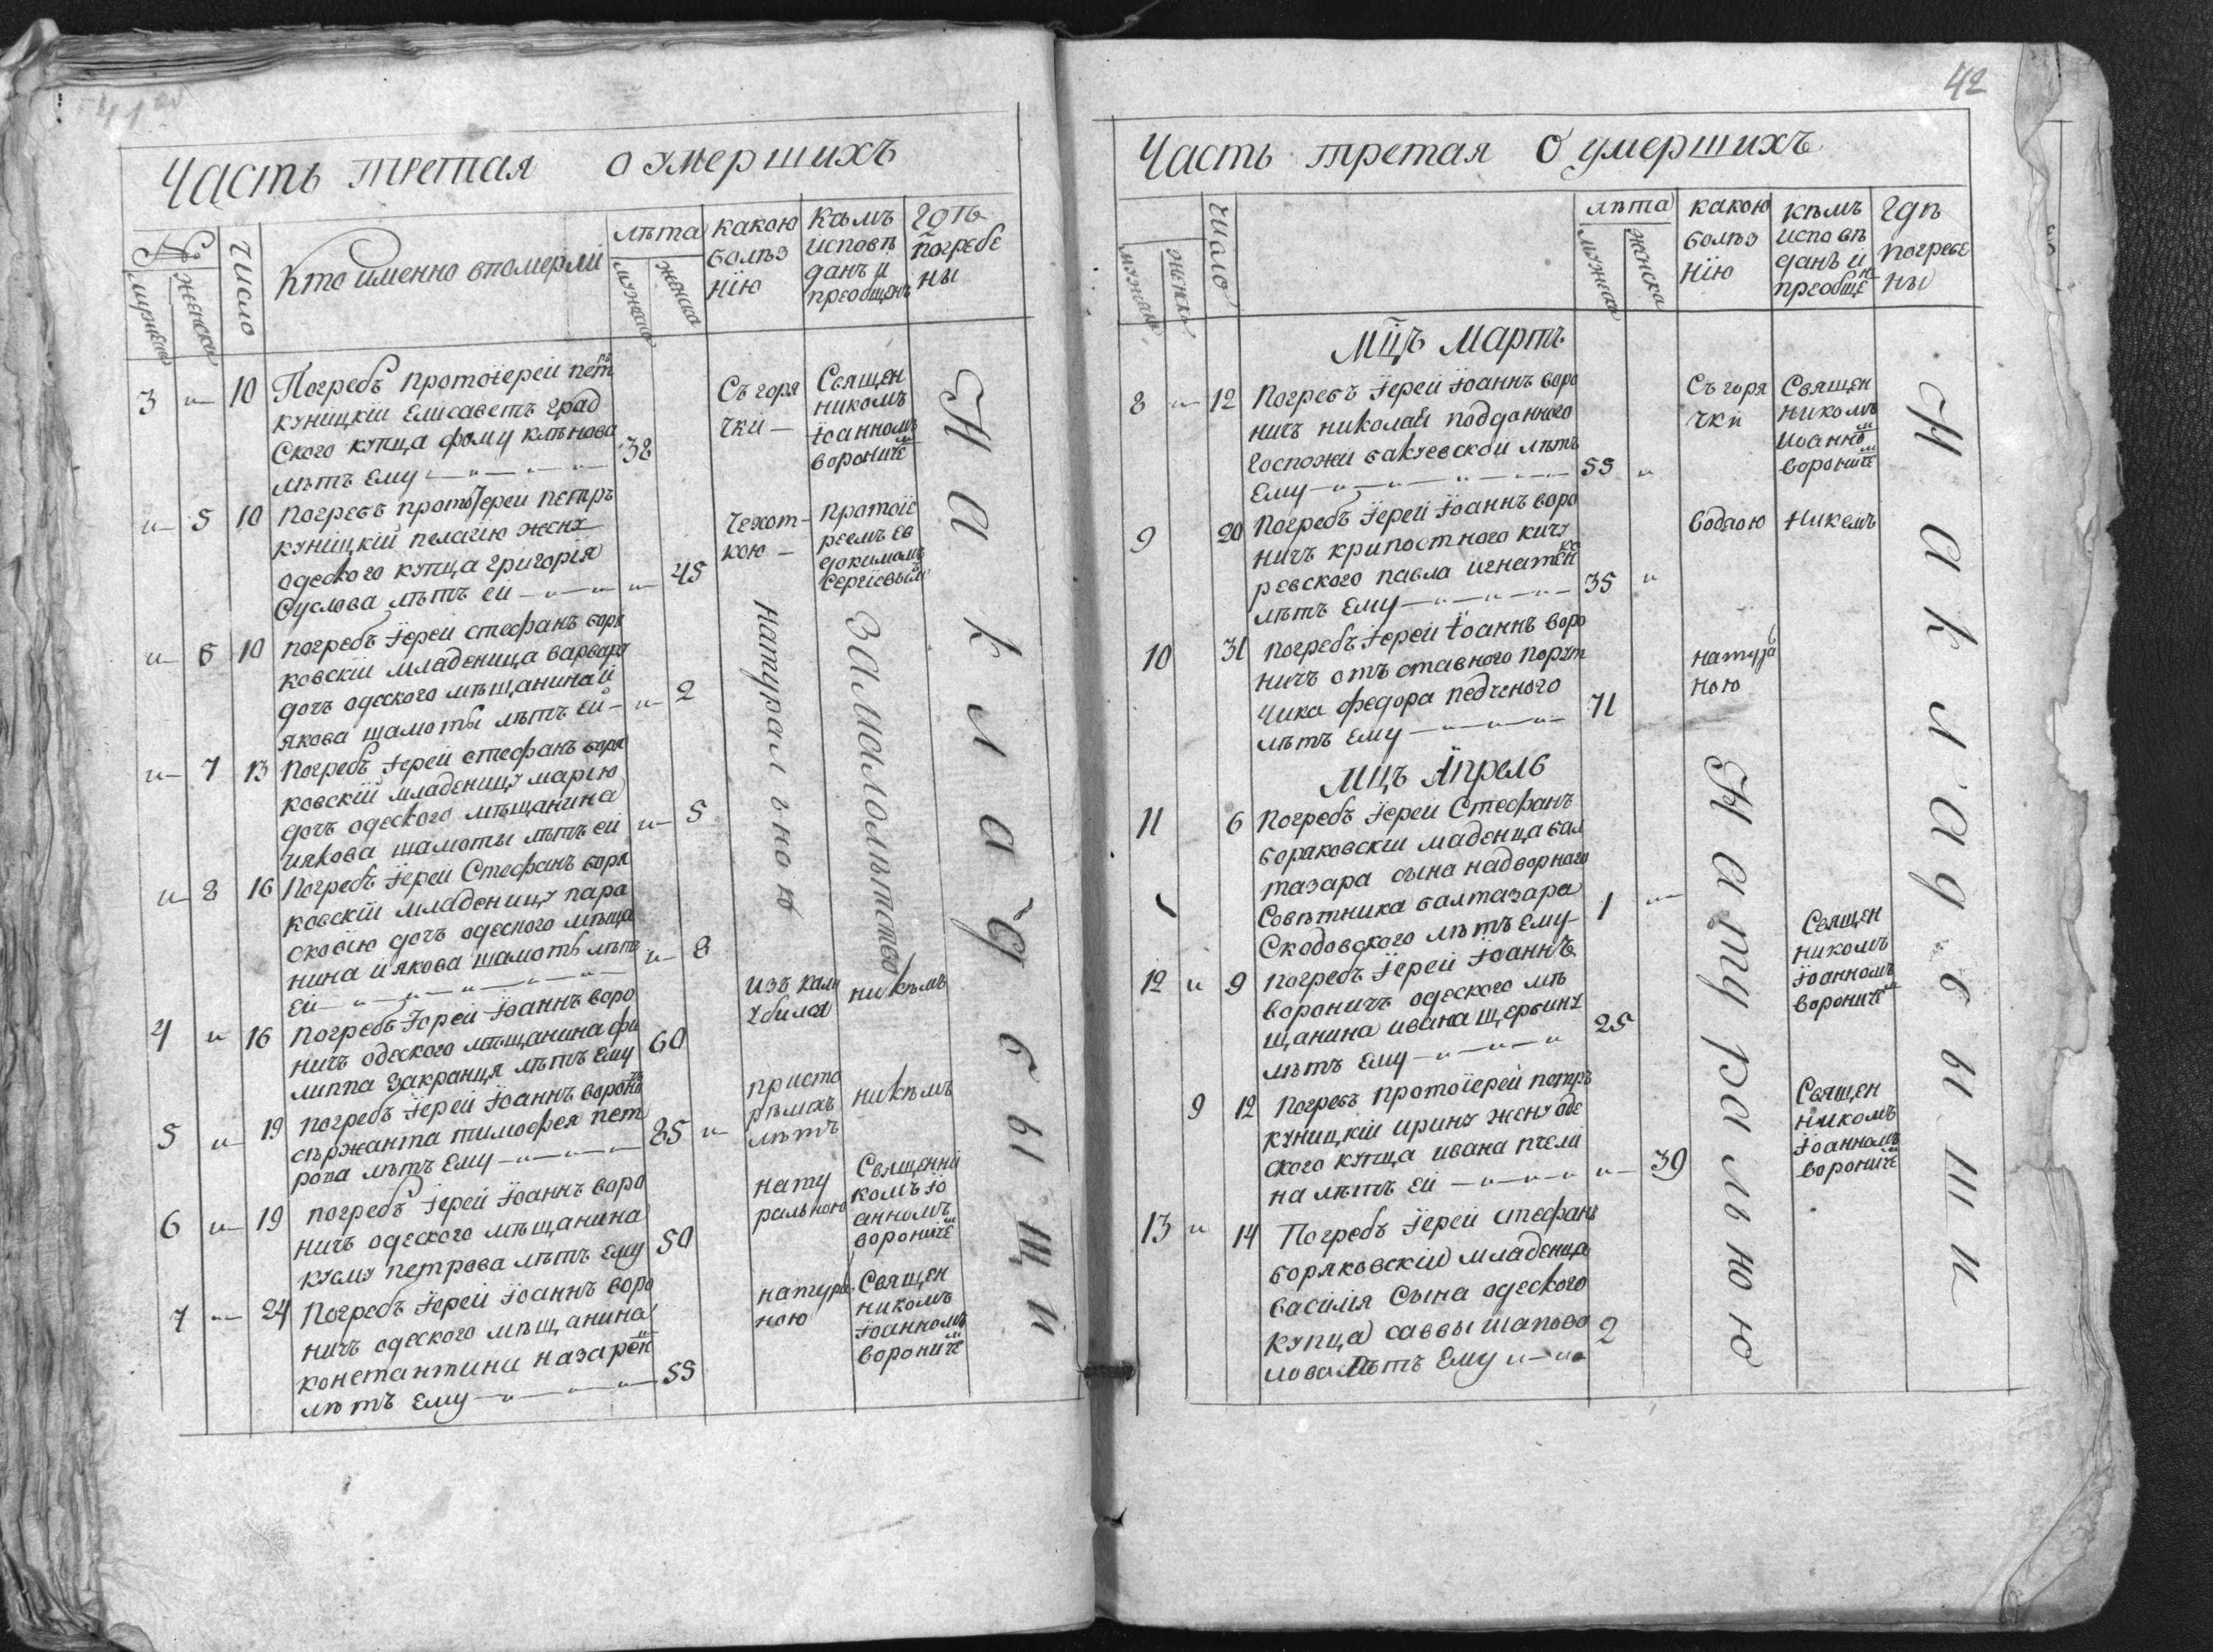 Часть третая о умершихъ
№
мужеска
женска
число
Кто именно впомерли
лѣта
мужеска
женска
какою
болѣз
нїю
Кѣмъ
исповѣ
данъ и
преобщенъ
гдѣ
погребе
ны
3 10 Погребъ протоїерей пет
куницкїй Елисаветъ град
ского купца фому клѣнова
лѣтъ Ему 38
Съ горя
чки
Священ
никомъ
Іоанномъ
вороничем
5 10 Погребъ протоїерей петръ
куницкїй пелагїю жену
одеского купца григорїя
Суслова лѣтъ ей 45
Чехот
кою
протоїе
реемъ ев
докимомъ
Сергїевымъ
6 10 погребъ Їерей стефанъ боря
ковскїй младеница варвару
дочъ одеского мѣщанина й
якова шамоты лѣтъ ей 2
7 13 Погребъ Їерей стефанъ боря
ковскїй младеницу марїю
дочъ одеского мѣщанина
иякова шамоты лѣтъ ей 5
8 16 Погребъ Їерей Стефанъ боря
ковскїй младеницу пара
сковїю дочъ одеского мѣща
нина й якова шамоты лѣтъ
Ей 8
натуралною
За малолѣтство
4 16 Погребъ Їерей Їоаннъ воро
ничъ одеского мѣщанина фи
липпа Закранця лѣтъ Ему 60
изъ кали
убился
никѣмъ
5 19 погребъ Їерей Їоаннъ воронъ
сѣржанта тимофея пет
рова лѣтъ Ему 85
при ста
рѣлихъ
лѣтъ
никѣмъ
6 19 погребъ Їерей Їоаннъ воро
ничъ одеского мѣщанина
кузму петрова лѣтъ Ему 50
нату
ральною
Священни
комъ Їо
анномъ
вороничем
7 24 Погребъ Їерей Їоаннъ воро
ничъ одеского мѣщанина
константина назарен
лѣтъ Ему 55
натура
ною
Священ
никомъ
Їоанномъ
вороничем
На кладбыщи
42
Часть третая О умершихъ
мужеска
женска
число
лѣта
мужеска
женска
какою
болѣз
нїю
кѣмъ
исповѣ
данъ и
преобщен
гдѣ
погребе
ны
Мц҃ъ Мартъ
8 12 Погребъ Їерей Їоаннъ воро
ничъ николая подданного
госпожи бакуевской лѣтъ
Ему 55
Съ горя
чки
Священ
никомъ
Иоанном
вороничем
9 20 Погребъ Їерей Їоаннъ воро
ничъ крипостного кичу
ревского павла игнатенко
лѣтъ Ему 35
водяою
Никемъ
10 31 погребъ Їерей Їоаннъ воро
ничъ отъ ставного порут
чика федора педченого
лѣтъ Ему 71
натура
ною
Мцъ Апрель
11 6 Погребъ Їерей Стефанъ
боряковскїи маденца бал
тазара сына надворнаго
Совѣтника балтазара
Скодовского лѣтъ Ему 1
12 9 погребъ Їерей Їоаннъ
вороничъ одеского мѣ
щанина ивана щербину
лѣтъ Ему 25
Священ
никомъ
Їоанномъ
вороничем
9 12 Погребъ протоїерей петръ
куницкїй ирину жену оде
ского купца ивана пчели
на лѣтъ ей 39
Священ
никомъ
Їоанномъ
вороничем
13 14 Погребъ Їерей стефанъ
боряковскїй младенца
василїя сына одеского
купца саввы шапова
лова лѣтъ Ему 2
Натуральною
На кладбыщи